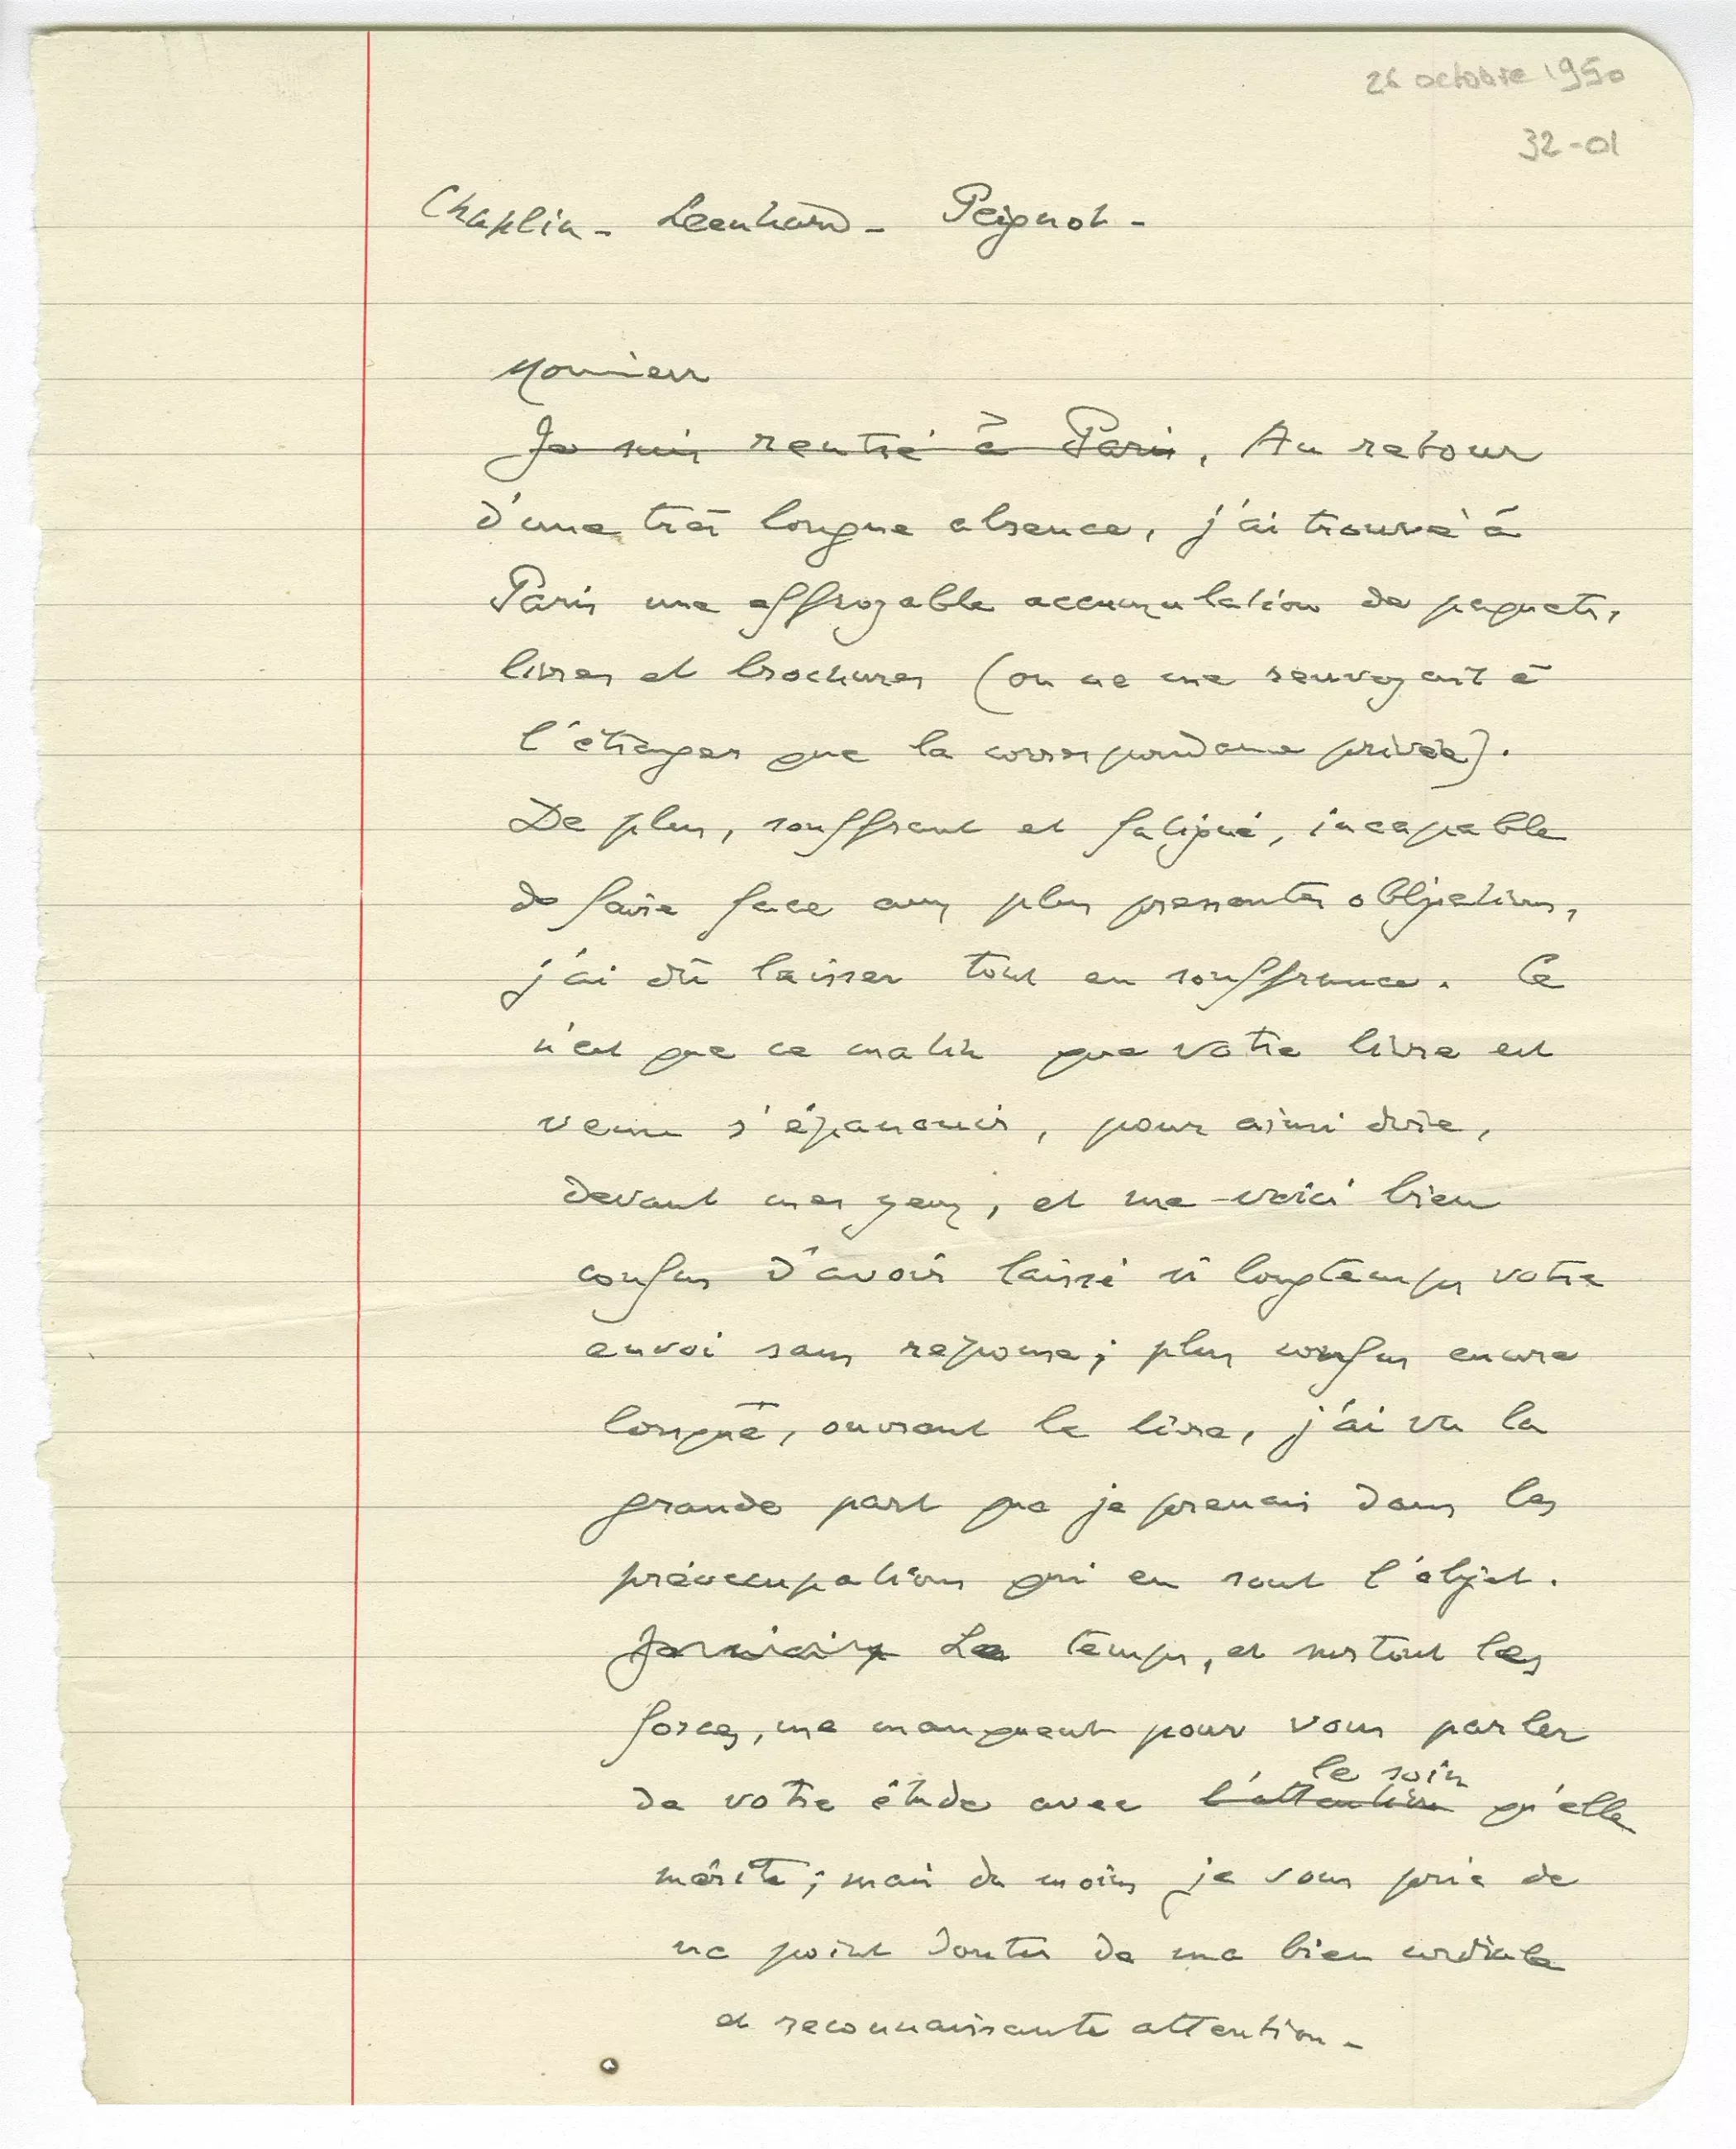 26 octobre 1950
32-01
Chaplin - Leenhard - Peignot -
Monsieur
Je suis rentré à Paris, Au retour
d'une très longue absence, j'ai trouvé à
Paris une effroyable accumulation de paquets,
livres et brochures (on ne me renvoyait à
l'étranger que la correspondance privée).
De plus, souffrant et fatigué, incapable
de faire face aux plus pressantes obligations,
j'ai dû laisser tout en souffrance. Ce
n'est que ce matin que votre livre est
venu s'épanouir, pour ainsi dire,
devant mes yeux, et me voici bien
confus d'avoir laissé si longtemps votre
envoi sans reponse; plus confus encore
lorsque, ouvrant le livre, j'ai vu la
grande part que je prenais dans les
préoccupations qui en sont l'objet.
Le temps, et surtout les
forces, me manquent pour vous parler
le soin
de votre étude avec l'attention qu'elle
mérite; mais du moins je vous prie de
ne point douter de ma bien cordiale
et reconnaissante attention -